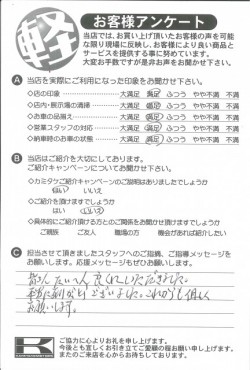 軽
お客様アンケート
当店では、お買い上げ頂いたお客様の声を可能
な限り現場に反映し、お客様により良い商品と
サービスを提供する事に努めています。
大変お手数ですが是非お声をお聞かせ下さい。
A 当店を実際にご利用になった印象をお聞かせ下さい。
◇店の印象 大満足 満足 ふつう やや不満 不満
◇店内・展示場の清掃 大満足 満足 ふつう やや不満 不満
◇お車の品揃え 大満足 満足 ふつう やや不満 不満
◇営業スタッフの対応 大満足 満足 ふつう やや不満 不満
◇納車時のお車の状態 大満足 満足 ふつう やや不満 不満
B 当店はご紹介を大切にしております。
ご紹介キャンペーンについてお聞かせ下さい。
◇カミタケご紹介キャンペーンのご説明はありましたでしょうか
はい いいえ
◇ご紹介を頂けますでしょうか
はい いいえ
◇具体的にご紹介頂ける方とのご関係をお聞かせ頂けますでしょうか
ご親族 ご友人 職場の方 機会があれば紹介したい
C 担当させて頂きましたスタッフへのご指摘、ご指導メッセージを
お願いします。応援メッセージもぜひお願いします。
皆さん
ありがとうございました。これからも
お願いします。
K
ご協力に心よりお礼を申し上げます。
今後とも宜しくお引き立てご愛顧の程お願い申し上げます。
またのご来店を心からお待ちしております。